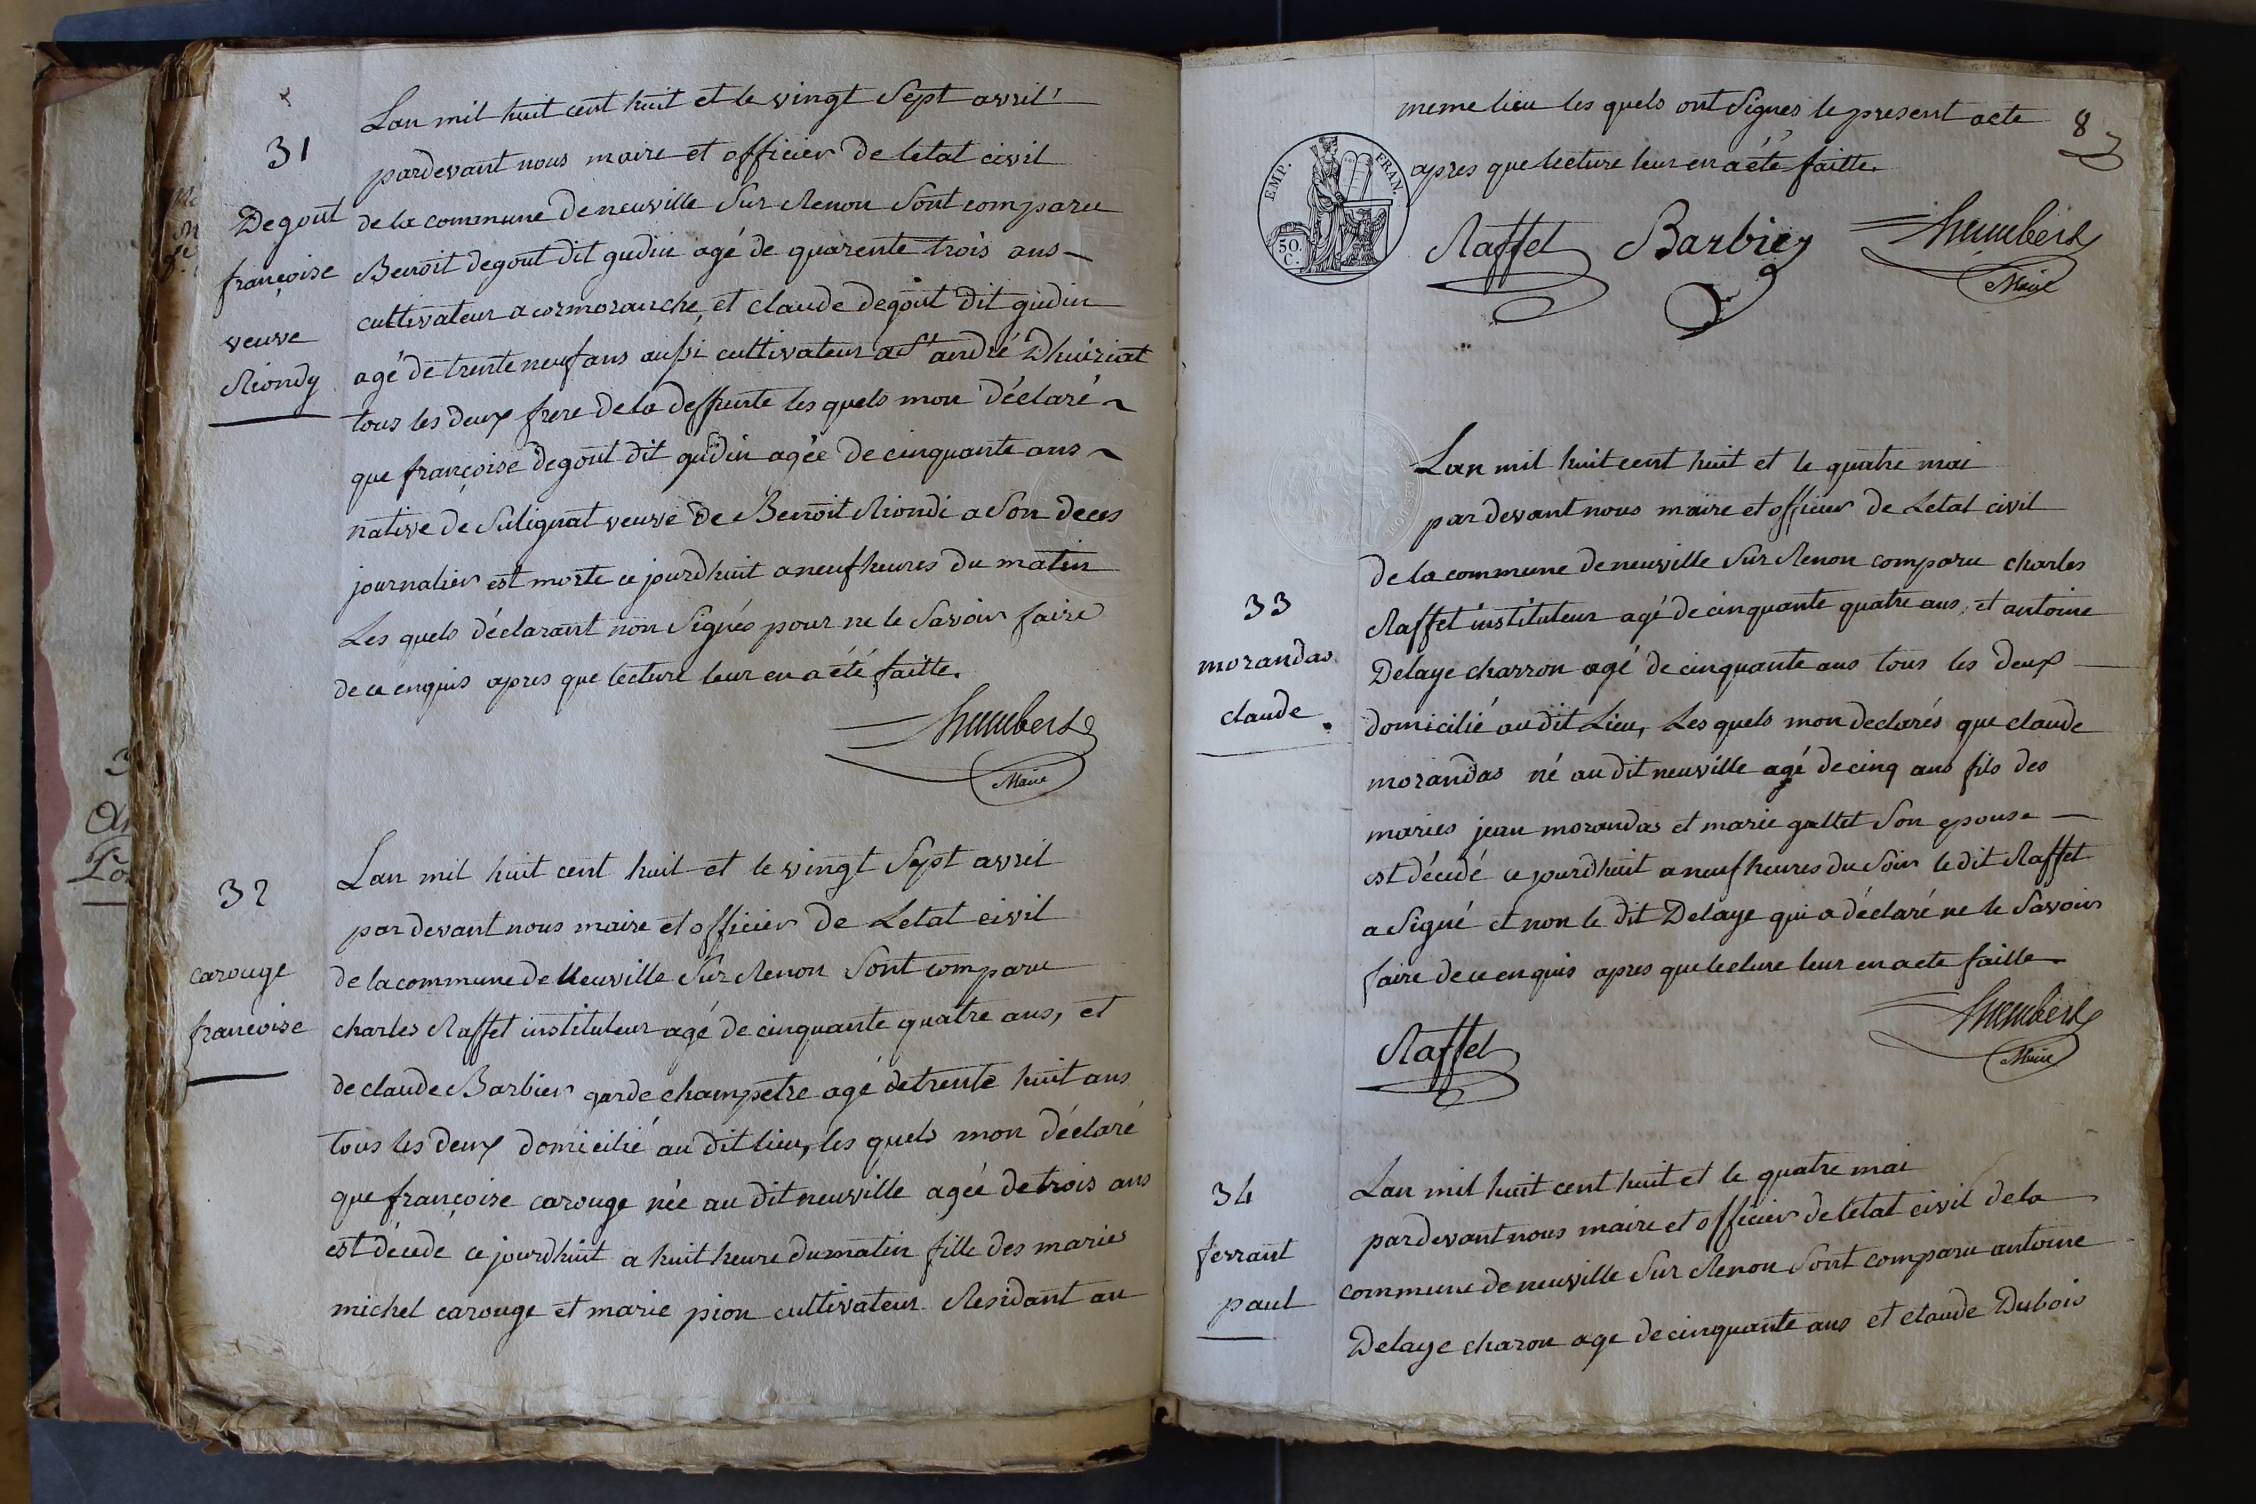 31
Degout
françoise
veuve
Riondy
Lan mil huit cent huit et le vingt Sept avril
pardevant nous maire et officier de letat civil
de la commune de neuville Sur Renon Sont comparu
Benoit degout dit gudin agé de quarente trois ans
cultivateur a cormoranche, et claude degout dit gudin
agé de trente neuf ans aussi cultivateur a St andré Dhuiriat
tous les deux frere de la deffunte les quels mon déclaré
que françoise degout dit gudin agée de cinquante ans
native de Sulignat veuve de Benoit Riondi a Son deces
journalier est morte ce jourdhuit a neuf heures du matin
Les quels déclarant non Signés pour ne le Savoir faire
de ce enquis apres que lecture leur en a été faitte.
humbert
Maire
32
carouge
francoise
Lan mil huit cent huit et le vingt Sept avril
par devant nous maire et officier de Letat civil
de la commune de Neuville Sur Renon Sont comparu
charles Raffet instituteur agé de cinquante quatre ans, et
de claude Barbier garde champetre agé de trente huit ans
tous les deux domicilié au dit lieu, les quels mon déclaré
que françoise carouge née au dit neuville agée de trois ans
est décede ce jourdhuit a huit heure du matin fille des maries
michel carouge et marie pion cultivateur Residant au
8
meme lieu les quels ont Signes le present acte
apres que lecture leur en a été faitte.
EMP. FRAN.
50.
C.
Raffet Barbier humbert
Maire
33
morandas
claude.
Lan mil huit cent huit et le quatre mai
par devant nous maire et officier de Letat civil
de la commune de neuville Sur Renon comparu charles
Raffet instituteur agé de cinquante quatre ans, et antoine
Delaye charron agé de cinquante ans tous les deux
domicilié au dit Lieu, Les quels mon declarés que claude
morandas né au dit neuville agé de cinq ans fils des
maries jean morandas et marie gallet Son epouse
est décédé ce jourdhuit a neuf heures du Soir le dit Raffet
a Signé et non le dit Delaye qui a déclaré ne le Savoir
faire de ce enquis apres que lecture leur en a ete faitte
humbert
Raffet
Maire
34
ferrant
paul
Lan mil huit cent huit et le quatre mai
pardevant nous maire et officier de letat civil de la
commune de neuville Sur Renon Sont comparu antoine
Delaye charon age de cinquante ans et claude Dubois